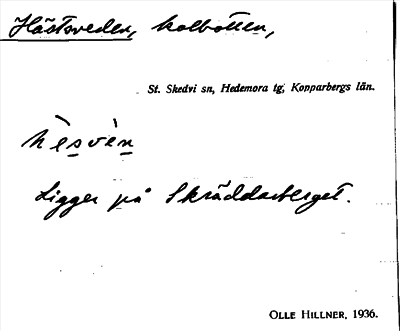 Hästsveden, kolbotten,
St. Skedvi sn, Hedemora tg, Kopparbergs län.
hè̱svè̱n
Ligger på Skräddarberget.
OLLE HILLNER, 1936.